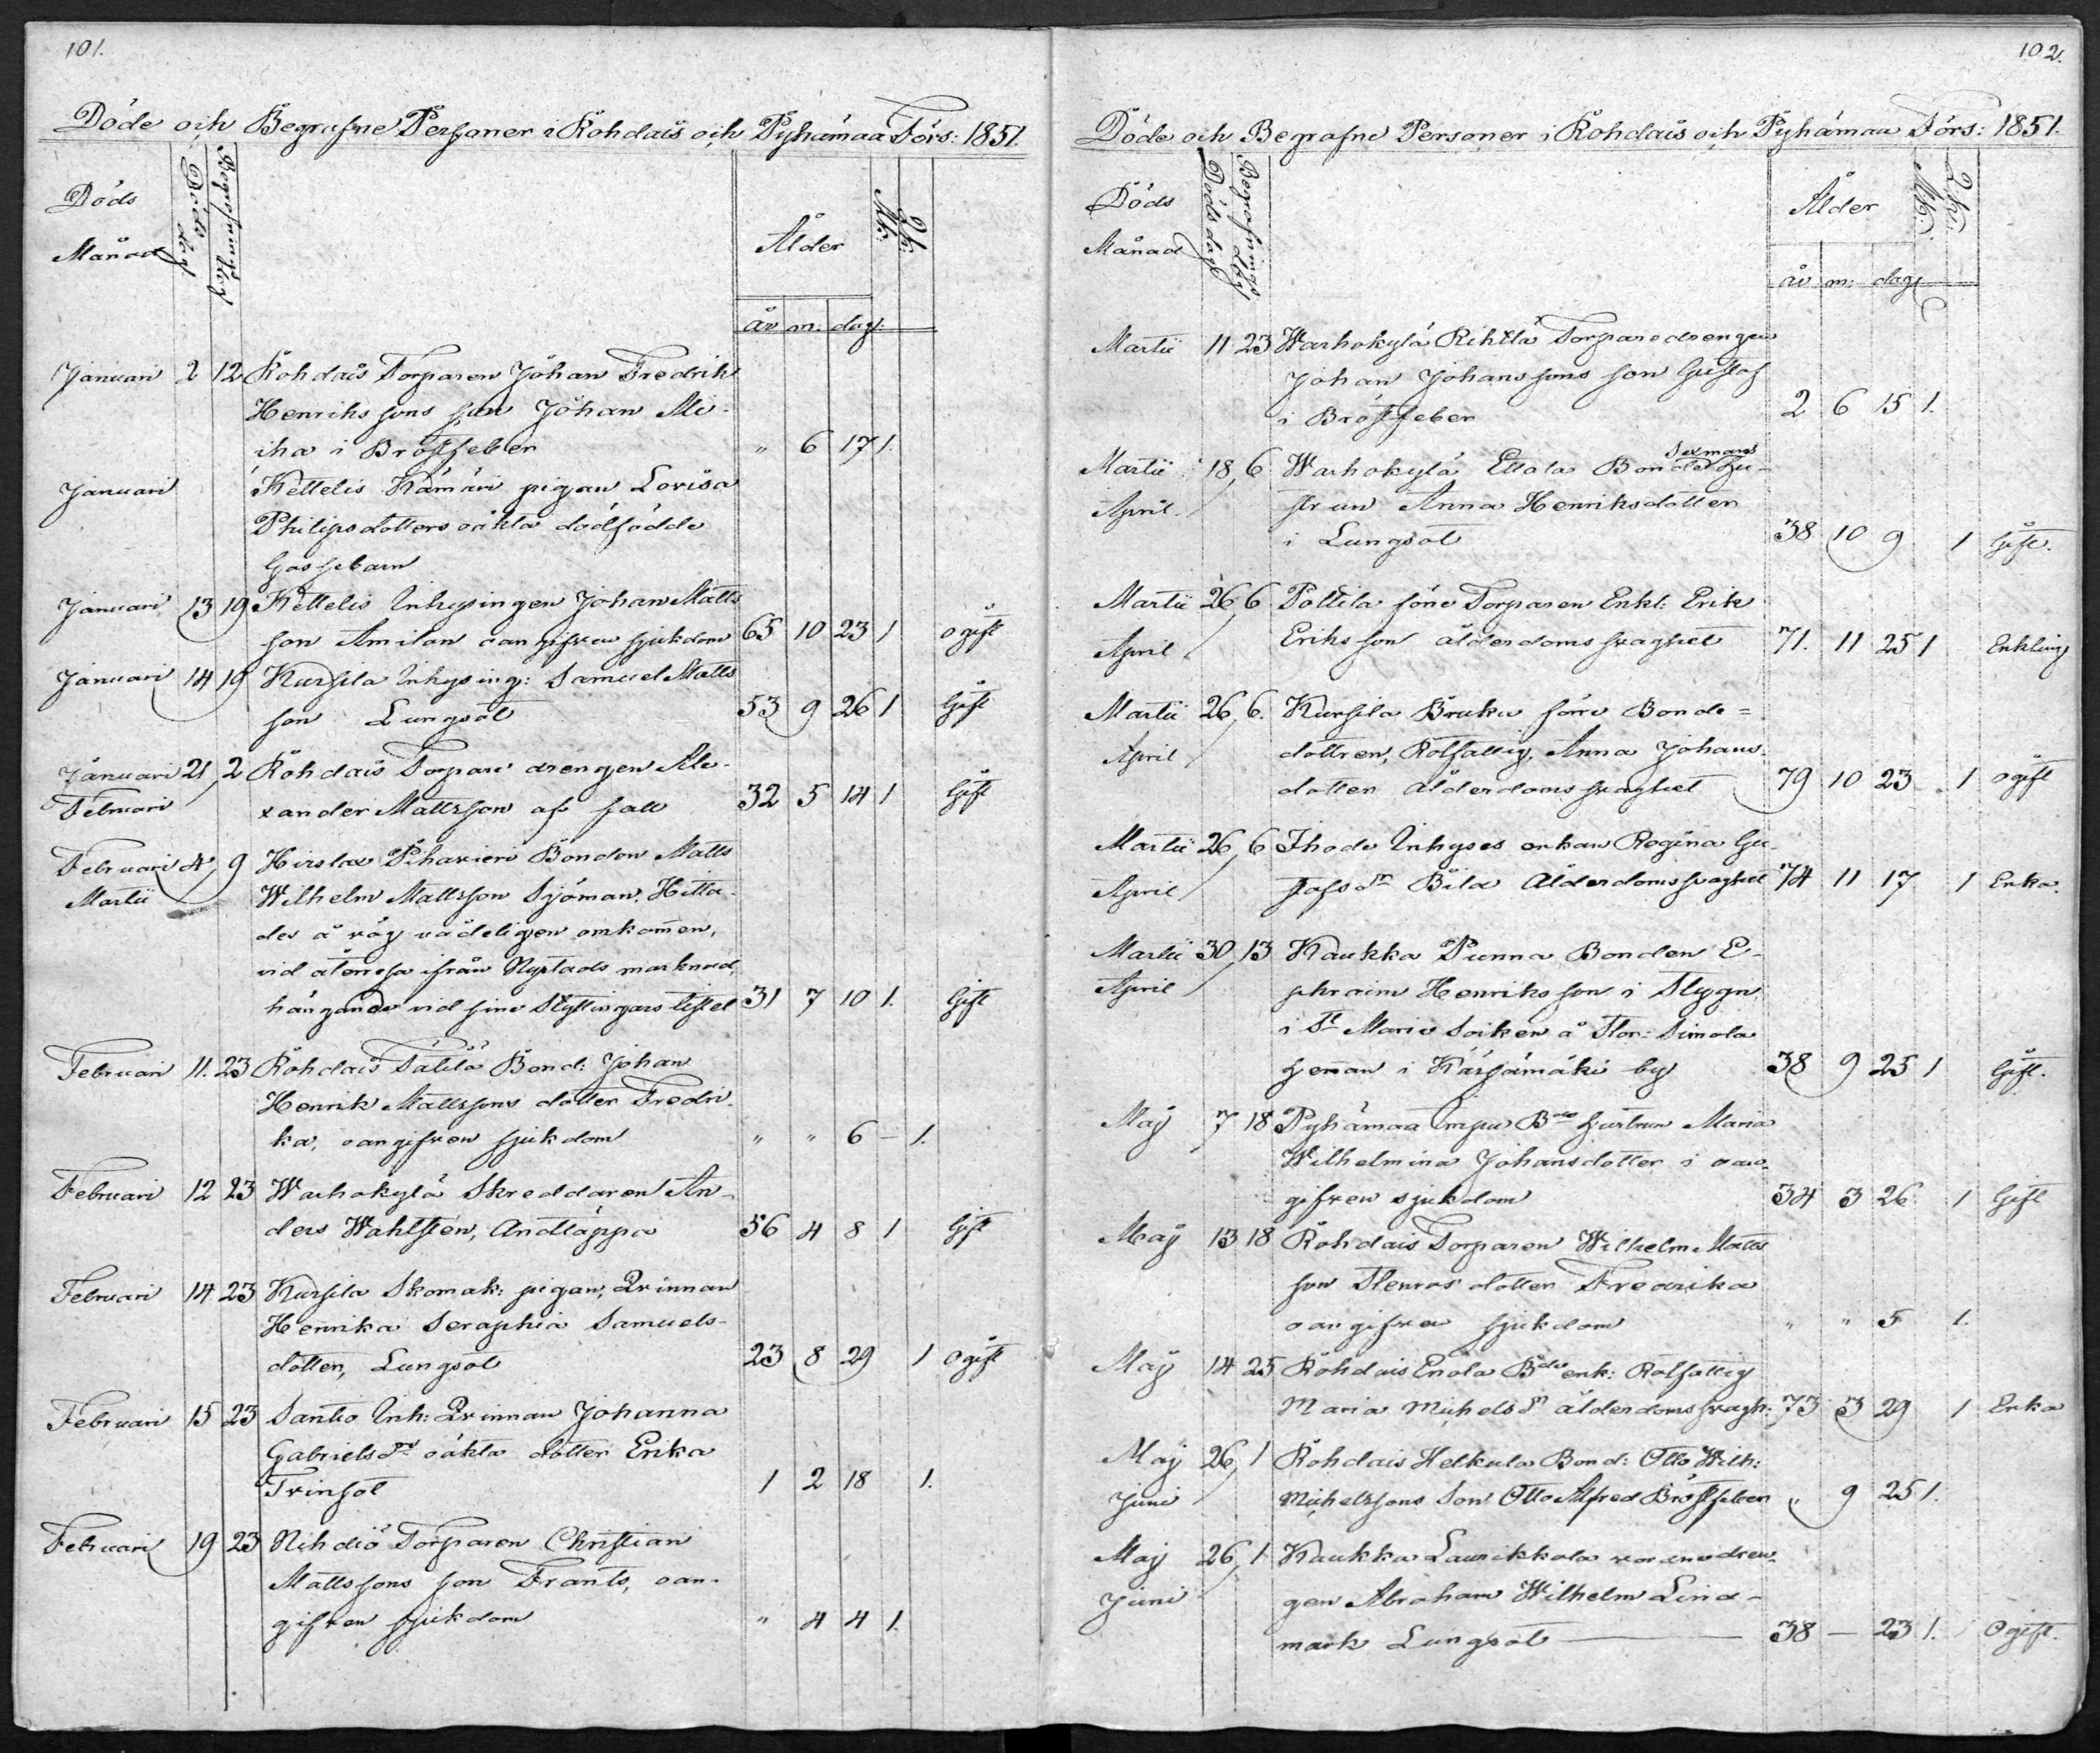 101.
Döde och Begrafne Personer i Rohdais och Pyhämaa Förs: 1851.
Döds Månad
Döds dag
Begrafnings dag
Ålder
år m: dag:
Mk:
Qk:
Januari 2 12 Rohdais Torparen Johan Fredrik
Henrikssons son Johan Mi-
iha i Bröstfeber " 6 17 1.
Januari Kettelis Kämäri pigan Lovisa
Philipsdotters oäkta dödfödde
Gossebarn
Januari 13 19 Kettelis Inhysingen Johan Matts
son Amilan oangifven sjukdom 65 10 23 1 ogift
Januari 14 19 Kursila Inhysing: Samuel Matts
son Lungsot 53 9 26 1 Gift
Januari 21, 2 Rohdais Torpare drengen Ale-
Februari xander Mattsson af fall 32 5 14 1 Gift
Februari 4, 9 Hirslax Pihavieri Bonden Matts
Martii Wilhelm Mattsson Sjöman, Hitta-
des å väg vådeligen omkommen,
vid återresa ifrån Nystads marknad,
hängande vid sine Skyttingars tistel 31 7 10 1. Gift
Februari 11. 23 Rohdais Sätilä Bond: Johan
Henrik Mattssons dotter Fredri-
ka, oangifven sjukdom " " 6 – 1.
Februari 12 23 Warhokylä Skreddaren An-
ders Wahlsten, Andtäppa 56 4 8 1 Gift
Februari 14 23 Kursila Skomak: pigan, Qvinnan
Henrika Seraphia Samuels-
dotter, Lungsot 23 8 29 1 Ogift
Februari 15 23 Santio Inh: Qvinnan Johanna
Gabriels dr oäkta dotter Erika
Tvinsot 1 2 18 1.
Februari 19 23 Nihdiö Torparen Christian
Mattssons son Frants, oan-
gifven sjukdom " 4 4 1.
102.
Döde och Begrafne Personer i Rohdais och Pyhämaa Förs: 1851.
Döds Månad
Döds dag
Begrafnings dag
Ålder
år m: dag
Mk:
Qk:
Martii 11 23 Warhokylä Rihtlä Torparedrengen
Johan Johanssons son Gustaf
i Bröstfeber 2 6 15 1.
Sexmans
Martii 18, 6 Warhokylä Ettala Bonde Hu-
April strun Anna Henriksdotter
i Lungsot 38 10 9 1 Gift.
Martii 26, 6 Pottila förre Torparen Enkl: Erik
April Eriksson ålderdomssvaghet 71. 11 25 1 Enkling
Martii 26, 6. Kursila Bruku förre Bonde=
April dottren, Rotfattig, Anna Johans-
dotter ålderdomssvaghet 79 10 23 1 Ogift
Martii 26, 6 Ihode Inhyses enkan Regina Gu-
April stafsdr Bila Ålderdomssvaghet 74 11 17 1 Enka.
Martii 30, 13 Kaukka Punna Bonden E-
April phraim Henriksson i Stygn
i St Mariæ Soiken å Stor: Simola
heman i Kärsämäki by 38 9 25 1 Gift.
Maj 7 18 Pyhämaa Impu Bde hustrun Maria
Wilhelmina Johansdotter i oan-
gifven sjukdom 34 3 26 1 Gift
Maj 13 18 Rohdais Torparen Wilhelm Matts
son Stenros dotter Fredrika
oangifven sjukdom " " 5 1.
Maj 14 25 Rohdais Enola Bde enk: Rotfattig
Maria Michels dr ålderdomssvagh: 73 3 29 1 Enka
Maj 26, 1 Rohdais Helkula Bond: Otto Wilh:
Juni Michelssons Son Otto Alfred Bröstfeber " 9 25 1.
Maj 26, 1 Kaukka Laurikkala varande dren-
Juni gen Abraham Wilhelm Lind-
mark Lungsot 38 – 23 1. Ogift.